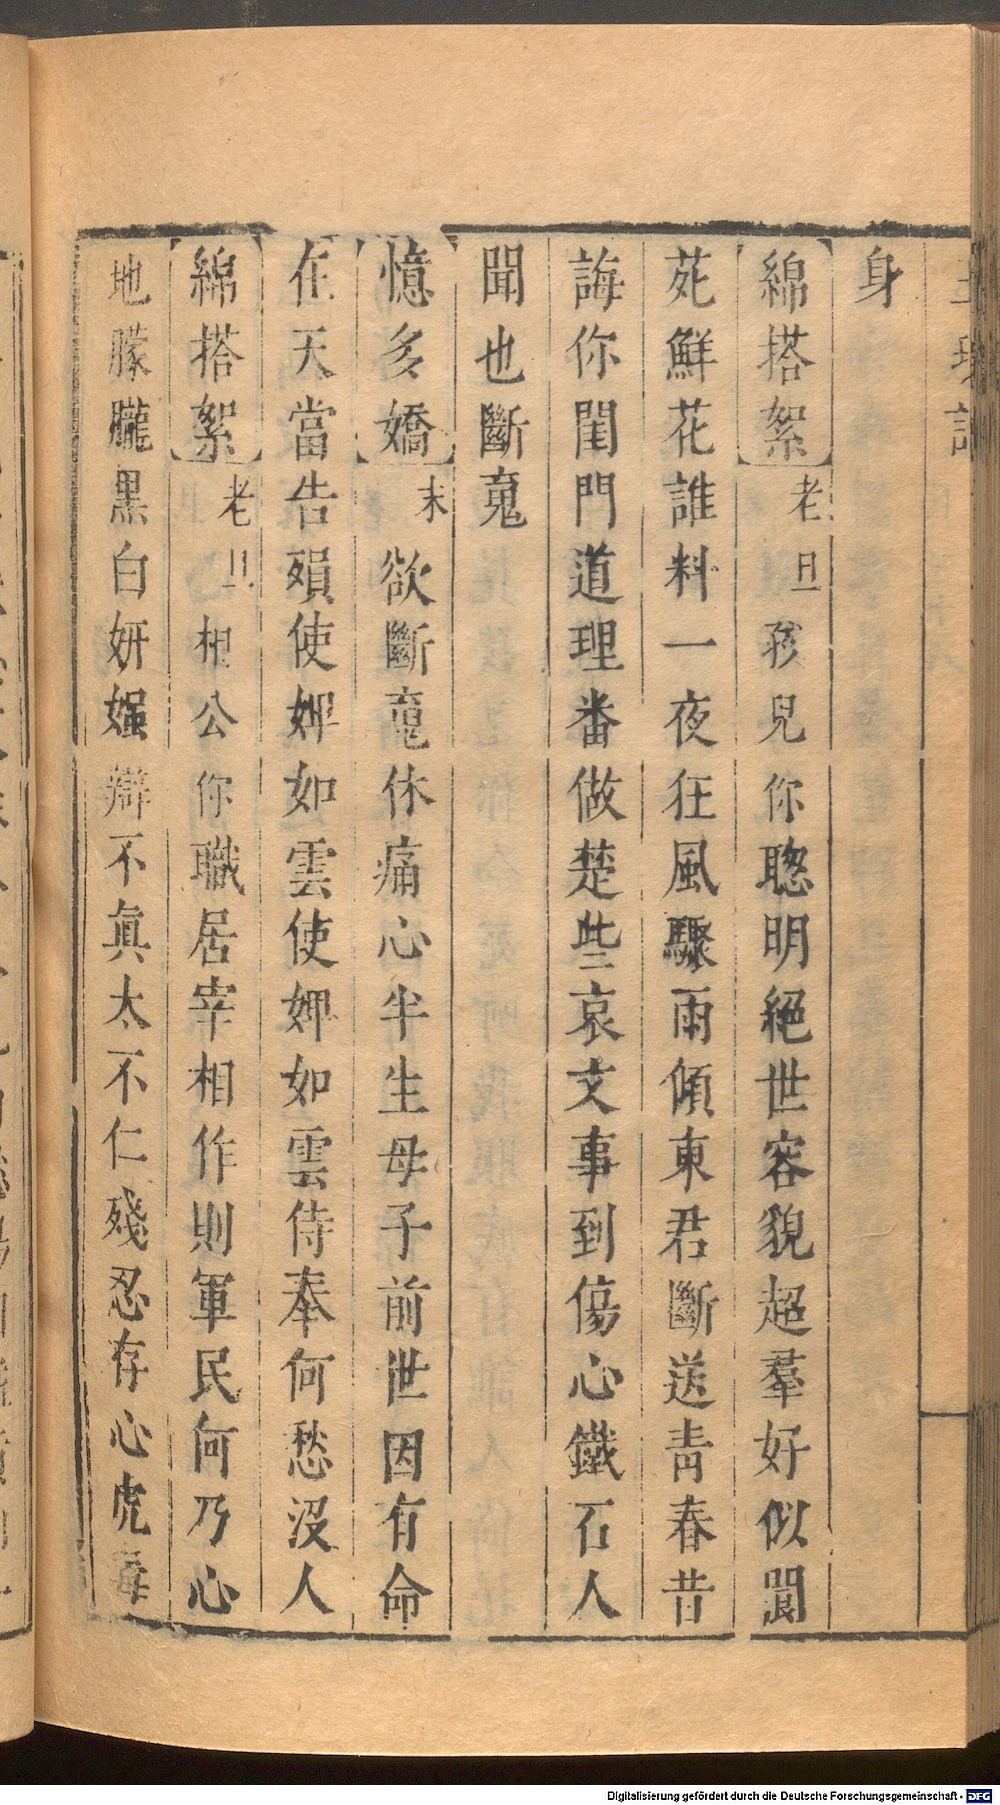 身
綿搭絮 老旦 孩兒你聰明絕世容貌超羣好似閬
苑鮮花誰料一夜狂風驟雨傾東君斷送青春昔
誨你閨門道理番做楚些哀文事到傷心鐵石人
聞也斷䰟
憶多嬌 末 欲斷䰟休痛心半生母子前世因有命
在天當告殞使婢如雲使婢如雲侍奉何愁沒人
綿搭絮 老旦 相公你職居宰相作則軍民何乃心
地朦朧黑白妍媸辯不眞太不仁殘忍存心虎毒
Digitalisierung gefördert durch die Deutsche Forschungsgemeinschaft - DFG